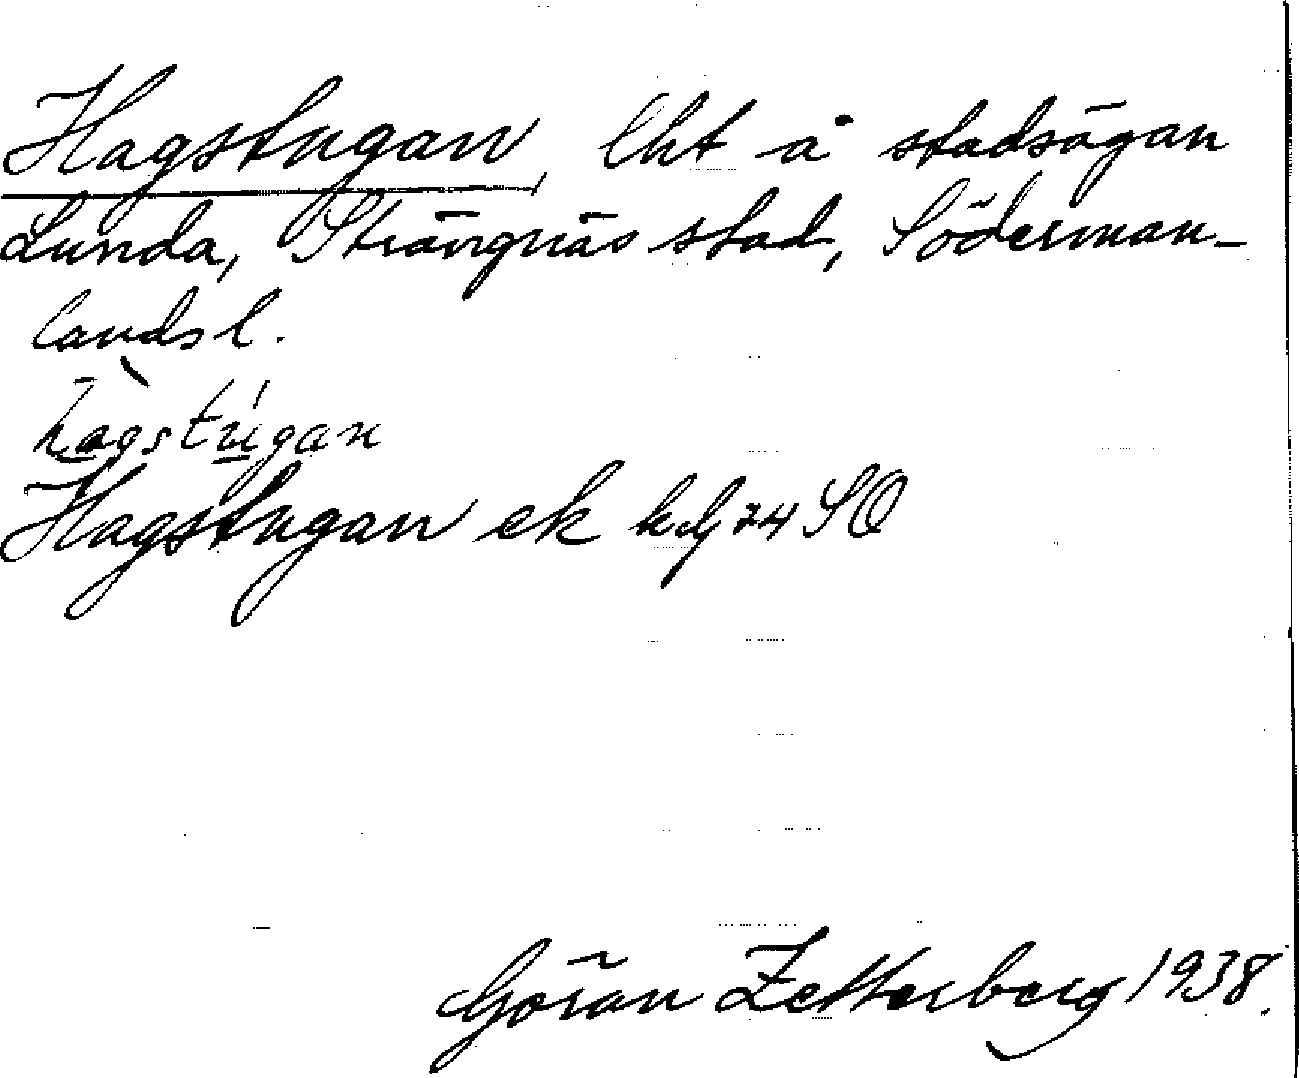 Hagstugan, lht å stadsägan
Lunda, Strängnäs stad, Söderman-
lands l.
hàgstúgan
Hagstugan ek kbl 74 SO
Göran Zetterberg 1938.